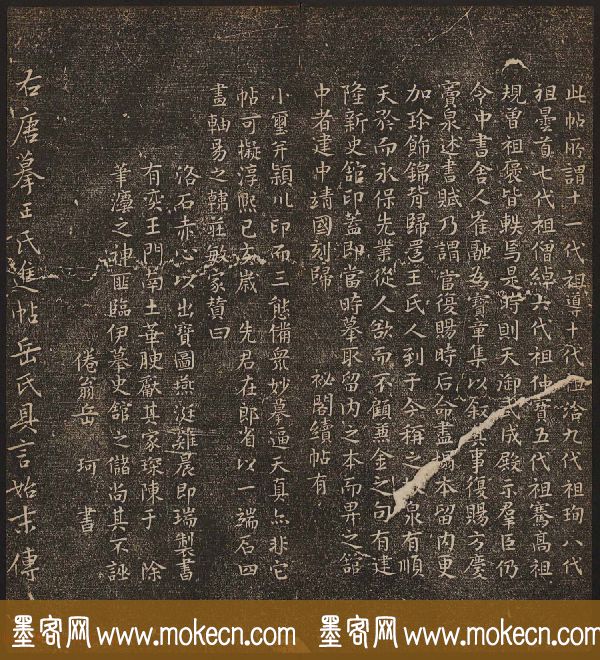 此帖所謂十一代祖導十代祖洽九代祖珣八代
祖曇首七代祖僧綽六代祖仲寶五代祖騫高祖
規曾祖褒皆軼焉是時則天御武成殿示羣臣仍
令中書舍人崔融為寶章集以叙其事復賜方慶
竇泉述書賦乃謂當復賜時后命盡搨本留內更
加珍飾錦背歸還王氏人到于今稱之 泉有順
天矜而永保先業從人欲而不顧兼金之句有建
隆新史館印蓋即當時摹取留內之本而畀之館
中者建中靖國刻歸 祕閣續帖有
小璽并潁川印而三態備衆妙摹逼天真亦非它
帖可擬淳熙己亥歲 先君在郎省以一端石四
畫軸易之韓莊敏家贊曰
洛石赤心以出寶圖燕涎雞晨即瑞製書
有奕王門南土華腴獻其家琛陳于 除
筆濡之神匪臨伊摹史館之儲尚其不誣
倦翁岳 珂 書
右唐摹王氏進帖岳氏具言始末傳
墨客网 www.mokecn.com 墨客网 www.mokecn.com